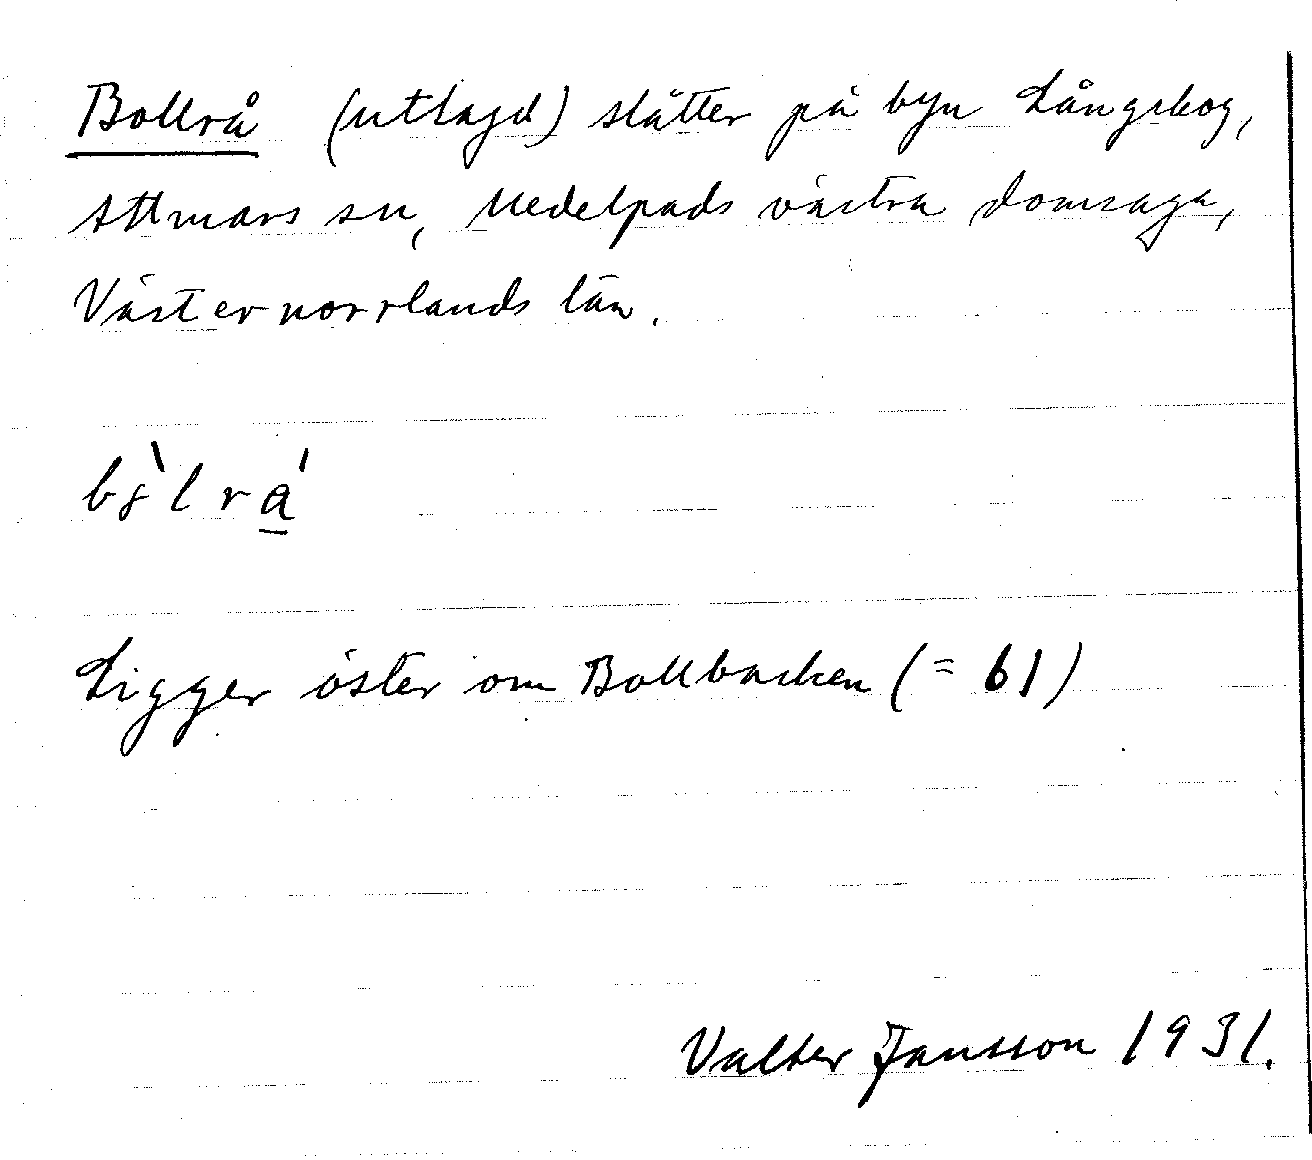 Bollrå (utlagd) slåtter på byn Långskog,
Attmars sn, Medelpads västra domsaga,
Västernorrlands län.
Ligger öster om Bollbacken (= 61)
Valter Jansson 1931.